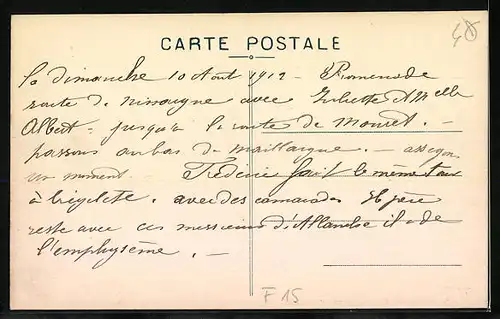 CARTE POSTALE
48
Le dimanche 10 Aout 1912 - Promenade
route de avec Juliette et Melle
Albert = jusqu'à la route de
passons au bas de Maillargue. - assayons
un moment. Frédéric fait le même tour
à bicyclete. avec des camarades et père
reste avec ces messieurs d'Allanche il a de
l'emphysème. -
F 15